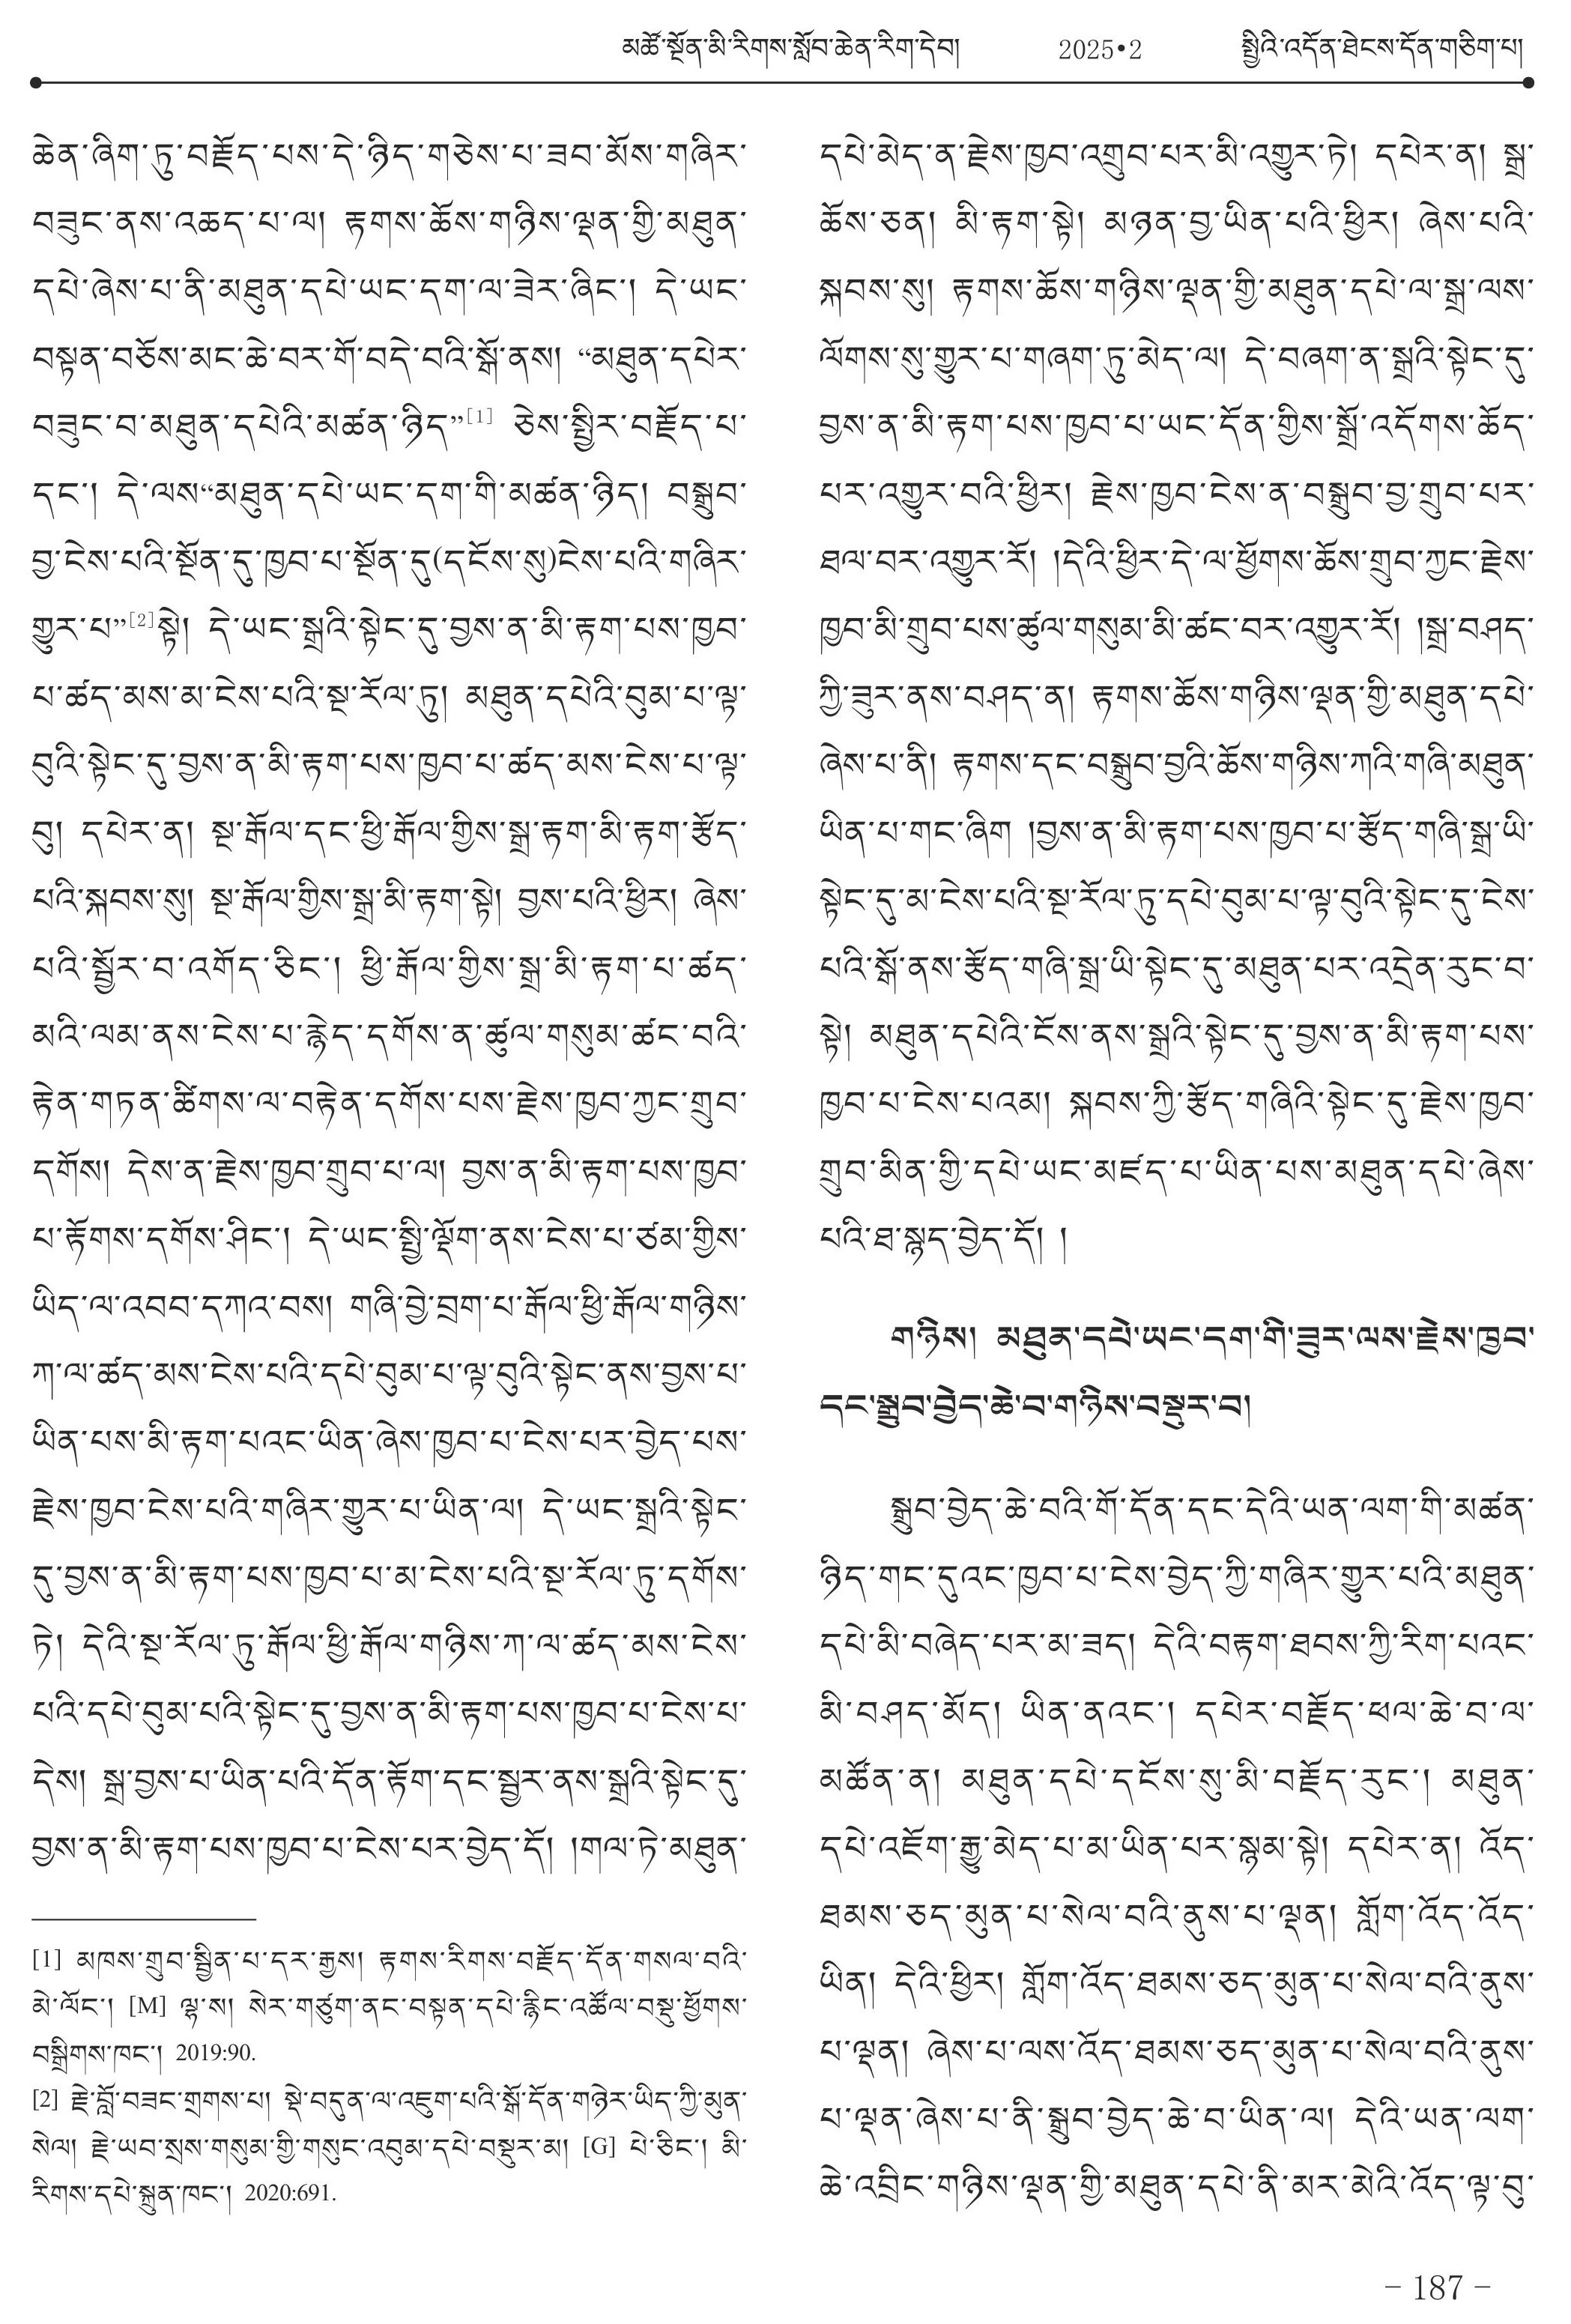 མཚོ་སྔོན་མི་རིགས་སློབ་ཆེན་རིག་དེབ། 2025•2 སྤྱིའི་འདོན་ཐེངས་དོན་གཅིག་པ།
ཆེན་ཞིག་ཏུ་བརྗོད་པས་དེ་ཉིད་གཅེས་པ་ཟབ་མོས་གཞིར་
བཟུང་ནས་འཆད་པ་ལ། རྟགས་ཆོས་གཉིས་ལྡན་གྱི་མཐུན་
དཔེ་ཞེས་པ་ནི་མཐུན་དཔེ་ཡང་དག་ལ་ཟེར་ཞིང་། དེ་ཡང་
བསྟན་བཅོས་མང་ཆེ་བར་གོ་བདེ་བའི་སྒོ་ནས། “མཐུན་དཔེར་
བཟུང་བ་མཐུན་དཔེའི་མཚན་ཉིད”[1] ཅེས་སྤྱིར་བརྗོད་པ་
དང་། དེ་ལས“མཐུན་དཔེ་ཡང་དག་གི་མཚན་ཉིད། བསྒྲུབ་
བྱ་ངེས་པའི་སྔོན་དུ་ཁྱབ་པ་སྔོན་དུ(དངོས་སུ)ངེས་པའི་གཞིར་
གྱུར་པ”[2]སྟེ། དེ་ཡང་སྒྲའི་སྟེང་དུ་བྱས་ན་མི་རྟག་པས་ཁྱབ་
པ་ཚད་མས་མ་ངེས་པའི་སྔ་རོལ་ཏུ། མཐུན་དཔེའི་བུམ་པ་ལྟ་
བུའི་སྟེང་དུ་བྱས་ན་མི་རྟག་པས་ཁྱབ་པ་ཚད་མས་ངེས་པ་ལྟ་
བུ། དཔེར་ན། སྔ་རྒོལ་དང་ཕྱི་རྒོལ་གྱིས་སྒྲ་རྟག་མི་རྟག་རྩོད་
པའི་སྐབས་སུ། སྔ་རྒོལ་གྱིས་སྒྲ་མི་རྟག་སྟེ། བྱས་པའི་ཕྱིར། ཞེས་
པའི་སྦྱོར་བ་འགོད་ཅིང་། ཕྱི་རྒོལ་གྱིས་སྒྲ་མི་རྟག་པ་ཚད་
མའི་ལམ་ནས་ངེས་པ་རྙེད་དགོས་ན་ཚུལ་གསུམ་ཚང་བའི་
རྟེན་གཏན་ཚིགས་ལ་བརྟེན་དགོས་པས་རྗེས་ཁྱབ་ཀྱང་གྲུབ་
དགོས། དེས་ན་རྗེས་ཁྱབ་གྲུབ་པ་ལ། བྱས་ན་མི་རྟག་པས་ཁྱབ་
པ་རྟོགས་དགོས་ཤིང་། དེ་ཡང་སྤྱི་ལྡོག་ནས་ངེས་པ་ཙམ་གྱིས་
ཡིད་ལ་འབབ་དཀའ་བས། གཞི་བྱེ་བྲག་པ་རྒོལ་ཕྱི་རྒོལ་གཉིས་
ཀ་ལ་ཚད་མས་ངེས་པའི་དཔེ་བུམ་པ་ལྟ་བུའི་སྟེང་ནས་བྱས་པ་
ཡིན་པས་མི་རྟག་པའང་ཡིན་ཞེས་ཁྱབ་པ་ངེས་པར་བྱེད་པས་
རྗེས་ཁྱབ་ངེས་པའི་གཞིར་གྱུར་པ་ཡིན་ལ། དེ་ཡང་སྒྲའི་སྟེང་
དུ་བྱས་ན་མི་རྟག་པས་ཁྱབ་པ་མ་ངེས་པའི་སྔ་རོལ་ཏུ་དགོས་
ཏེ། དེའི་སྔ་རོལ་ཏུ་རྒོལ་ཕྱི་རྒོལ་གཉིས་ཀ་ལ་ཚད་མས་ངེས་
པའི་དཔེ་བུམ་པའི་སྟེང་དུ་བྱས་ན་མི་རྟག་པས་ཁྱབ་པ་ངེས་པ་
དེས། སྒྲ་བྱས་པ་ཡིན་པའི་དོན་རྟོག་དང་སྦྱར་ནས་སྒྲའི་སྟེང་དུ་
བྱས་ན་མི་རྟག་པས་ཁྱབ་པ་ངེས་པར་བྱེད་དོ། །གལ་ཏེ་མཐུན་
[1] མཁས་གྲུབ་སྦྱིན་པ་དར་རྒྱས། རྟགས་རིགས་བརྗོད་དོན་གསལ་བའི་
མེ་ལོང་། [M] ལྷ་ས། སེར་གཙུག་ནང་བསྟན་དཔེ་རྙིང་འཚོལ་བསྡུ་ཕྱོགས་
བསྒྲིགས་ཁང་། 2019:90.
[2] རྗེ་བློ་བཟང་གྲགས་པ། སྡེ་བདུན་ལ་འཇུག་པའི་སྒོ་དོན་གཉེར་ཡིད་ཀྱི་མུན་
སེལ། རྗེ་ཡབ་སྲས་གསུམ་གྱི་གསུང་འབུམ་དཔེ་བསྡུར་མ། [G] པེ་ཅིང་། མི་
རིགས་དཔེ་སྐྲུན་ཁང་། 2020:691.
དཔེ་མེད་ན་རྗེས་ཁྱབ་འགྲུབ་པར་མི་འགྱུར་ཏེ། དཔེར་ན། སྒྲ་
ཆོས་ཅན། མི་རྟག་སྟེ། མཉན་བྱ་ཡིན་པའི་ཕྱིར། ཞེས་པའི་
སྐབས་སུ། རྟགས་ཆོས་གཉིས་ལྡན་གྱི་མཐུན་དཔེ་ལ་སྒྲ་ལས་
ལོགས་སུ་གྱུར་པ་གཞག་ཏུ་མེད་ལ། དེ་བཞག་ན་སྒྲའི་སྟེང་དུ་
བྱས་ན་མི་རྟག་པས་ཁྱབ་པ་ཡང་དོན་གྱིས་སྒྲོ་འདོགས་ཆོད་
པར་འགྱུར་བའི་ཕྱིར། རྗེས་ཁྱབ་ངེས་ན་བསྒྲུབ་བྱ་གྲུབ་པར་
ཐལ་བར་འགྱུར་རོ། །དེའི་ཕྱིར་དེ་ལ་ཕྱོགས་ཆོས་གྲུབ་ཀྱང་རྗེས་
ཁྱབ་མི་གྲུབ་པས་ཚུལ་གསུམ་མི་ཚང་བར་འགྱུར་རོ། །སྒྲ་བཤད་
ཀྱི་ཟུར་ནས་བཤད་ན། རྟགས་ཆོས་གཉིས་ལྡན་གྱི་མཐུན་དཔེ་
ཞེས་པ་ནི། རྟགས་དང་བསྒྲུབ་བྱའི་ཆོས་གཉིས་ཀའི་གཞི་མཐུན་
ཡིན་པ་གང་ཞིག །བྱས་ན་མི་རྟག་པས་ཁྱབ་པ་རྩོད་གཞི་སྒྲ་ཡི་
སྟེང་དུ་མ་ངེས་པའི་སྔ་རོལ་ཏུ་དཔེ་བུམ་པ་ལྟ་བུའི་སྟེང་དུ་ངེས་
པའི་སྒོ་ནས་རྩོད་གཞི་སྒྲ་ཡི་སྟེང་དུ་མཐུན་པར་འདྲེན་རུང་བ་
སྟེ། མཐུན་དཔེའི་ངོས་ནས་སྒྲའི་སྟེང་དུ་བྱས་ན་མི་རྟག་པས་
ཁྱབ་པ་ངེས་པའམ། སྐབས་ཀྱི་རྩོད་གཞིའི་སྟེང་དུ་རྗེས་ཁྱབ་
གྲུབ་མིན་གྱི་དཔེ་ཡང་མཛད་པ་ཡིན་པས་མཐུན་དཔེ་ཞེས་
པའི་ཐ་སྙད་བྱེད་དོ། །
གཉིས། མཐུན་དཔེ་ཡང་དག་གི་ཟུར་ལས་རྗེས་ཁྱབ་
དང་སྒྲུབ་བྱེད་ཆེ་བ་གཉིས་བསྡུར་བ།
སྒྲུབ་བྱེད་ཆེ་བའི་གོ་དོན་དང་དེའི་ཡན་ལག་གི་མཚན་
ཉིད་གང་དུའང་ཁྱབ་པ་ངེས་བྱེད་ཀྱི་གཞིར་གྱུར་པའི་མཐུན་
དཔེ་མི་བཞེད་པར་མ་ཟད། དེའི་བརྟག་ཐབས་ཀྱི་རིག་པའང་
མི་བཤད་མོད། ཡིན་ནའང་། དཔེར་བརྗོད་ཕལ་ཆེ་བ་ལ་
མཚོན་ན། མཐུན་དཔེ་དངོས་སུ་མི་བརྗོད་རུང་། མཐུན་
དཔེ་འཇོག་རྒྱུ་མེད་པ་མ་ཡིན་པར་སྙམ་སྟེ། དཔེར་ན། འོད་
ཐམས་ཅད་མུན་པ་སེལ་བའི་ནུས་པ་ལྡན། གློག་འོད་འོད་
ཡིན། དེའི་ཕྱིར། གློག་འོད་ཐམས་ཅད་མུན་པ་སེལ་བའི་ནུས་
པ་ལྡན། ཞེས་པ་ལས་འོད་ཐམས་ཅད་མུན་པ་སེལ་བའི་ནུས་
པ་ལྡན་ཞེས་པ་ནི་སྒྲུབ་བྱེད་ཆེ་བ་ཡིན་ལ། དེའི་ཡན་ལག་
ཆེ་འབྲིང་གཉིས་ལྡན་གྱི་མཐུན་དཔེ་ནི་མར་མེའི་འོད་ལྟ་བུ་
– 187 –